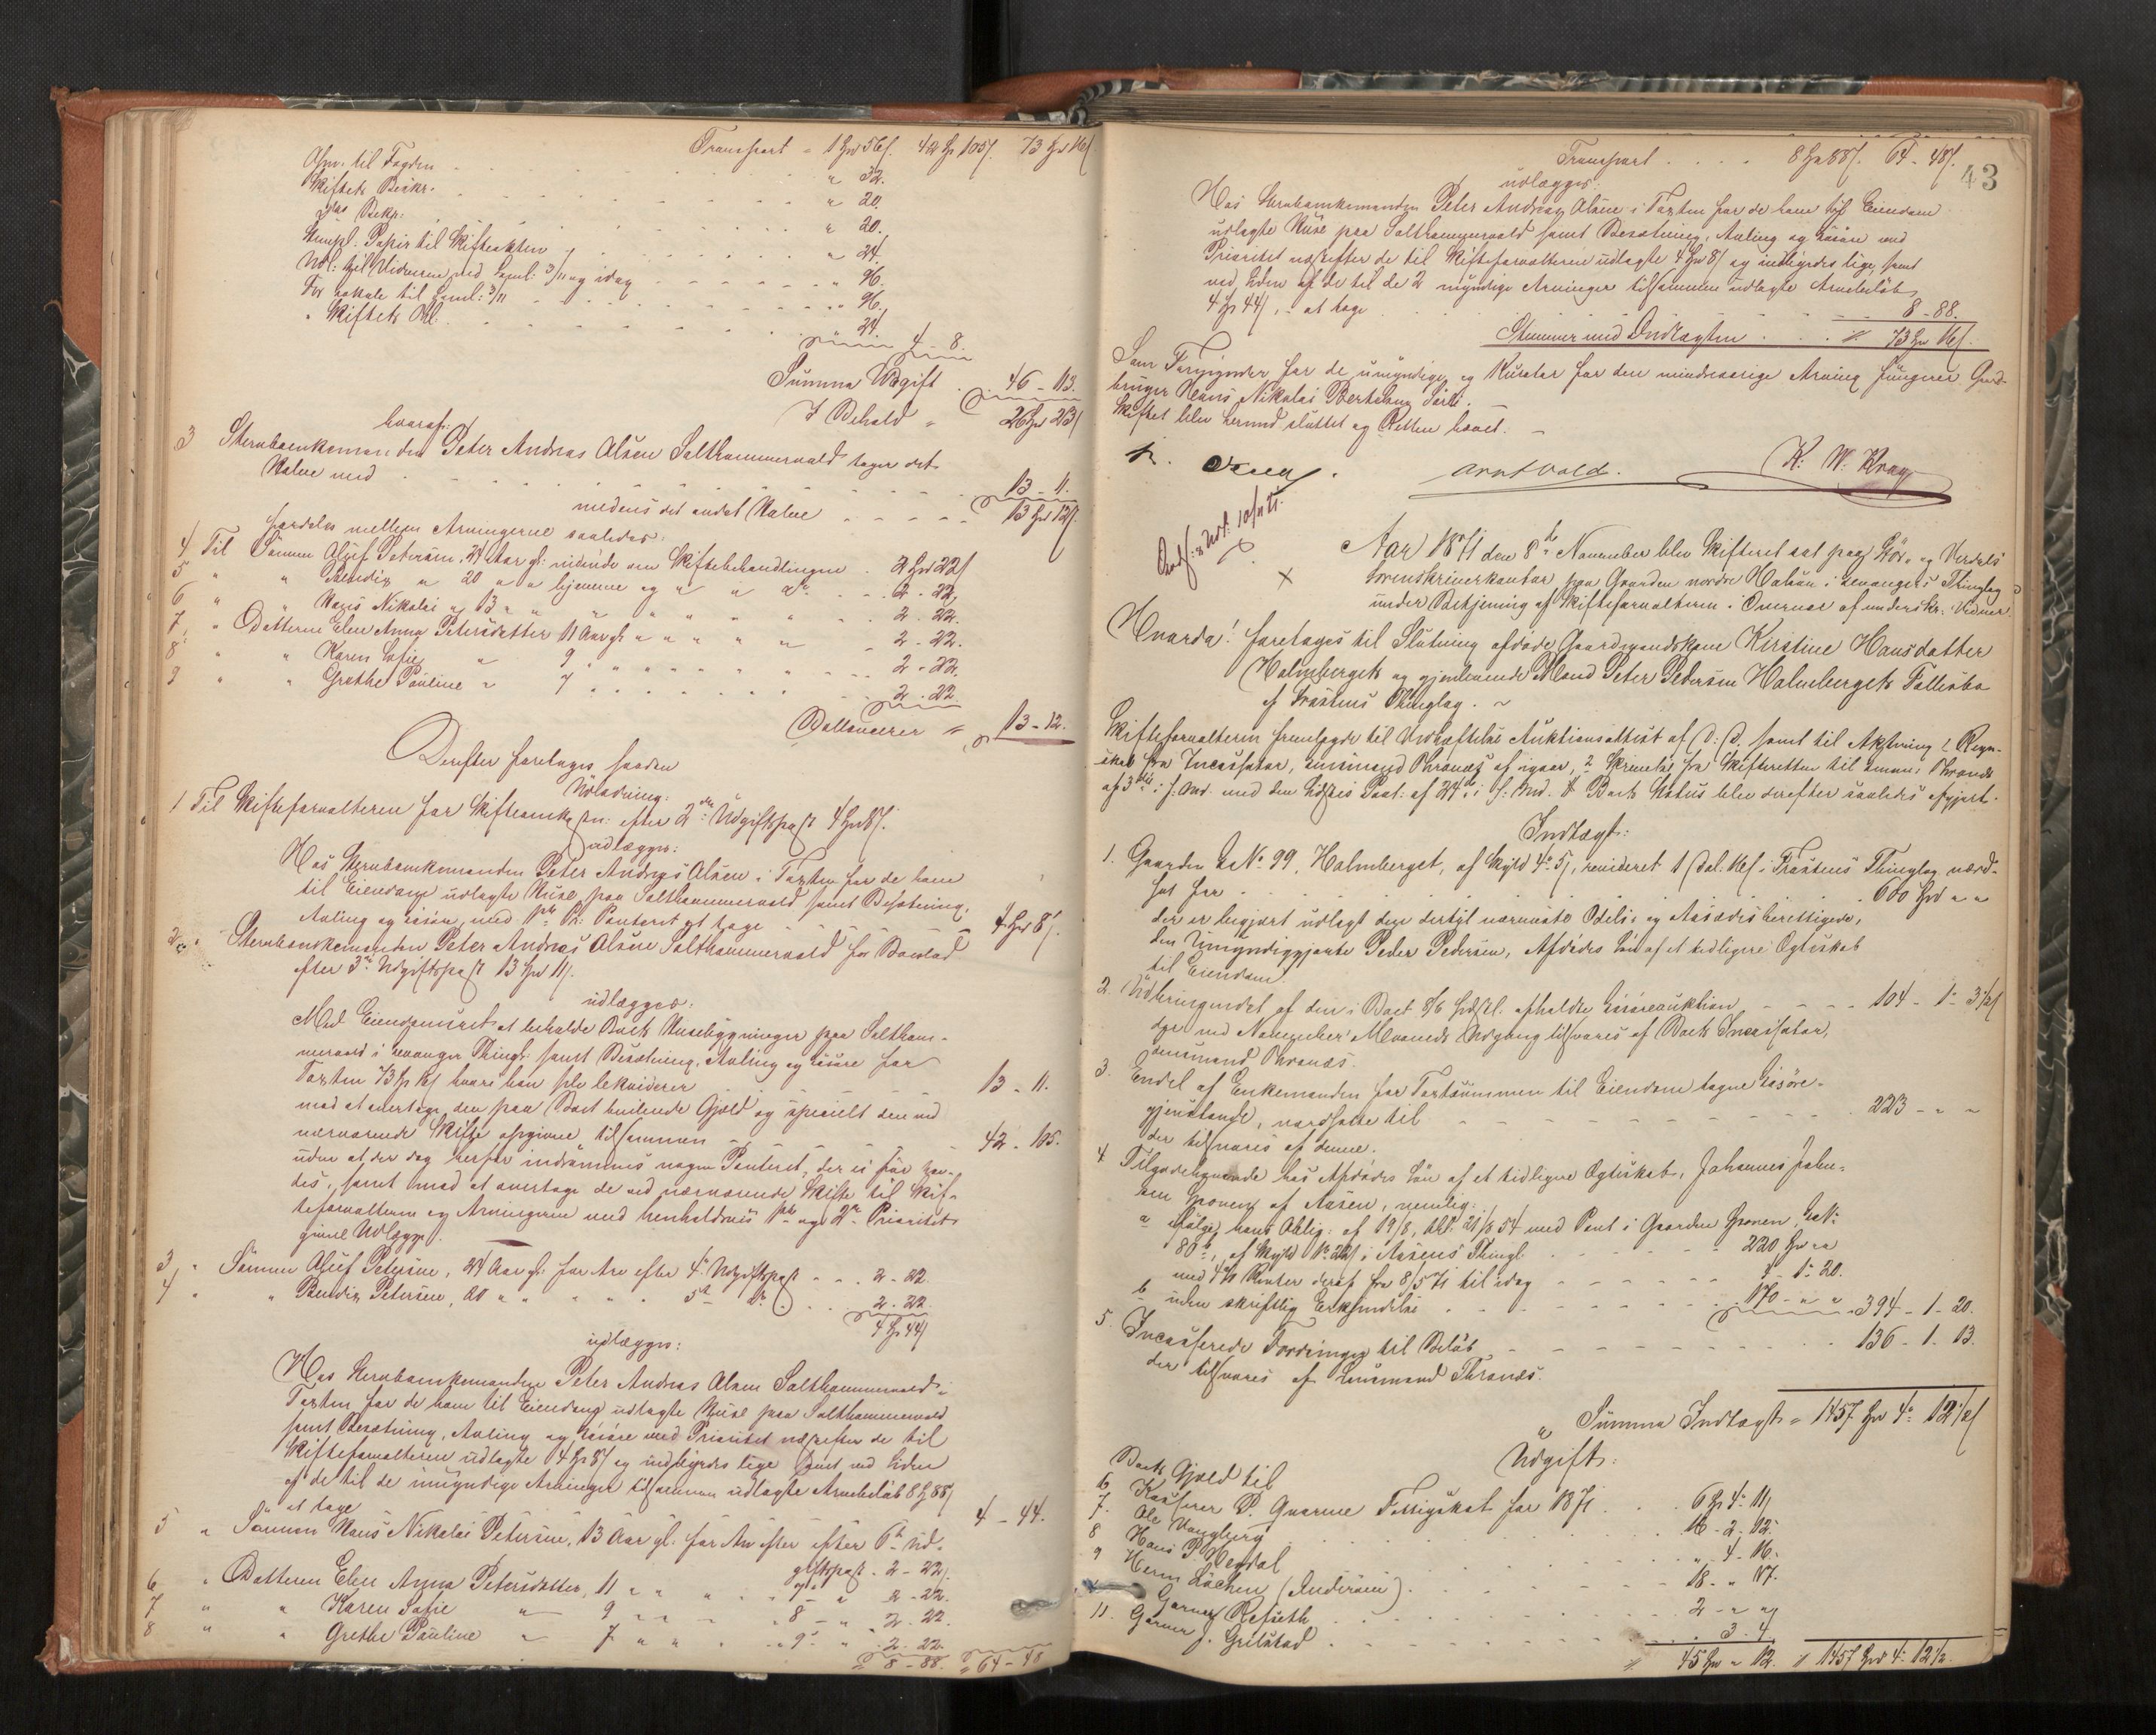 Transport = 1 Spd 56 s. 42 Sp 105 s. 73 Spd 16 s
til Fogden " 32.
Skiftets Beskr. " 20.
Bekr: " 20.
Stempl: Papir til Skifteakten " 24.
Vidnerne ved Saml: 3/11 og idag " 96.
For Lokale til Saml: 3/11 " 96.
" Skiftets " 24.
4 - 8.
Summa Udgift 46 - 113.
I Behold " 26 Spd 23 s
hvoraf:
3 Stervboenkemanden Peter Andreas Olsen Salthammervald tager det
Halve med 13 - 11.
medens det andet Halve 13 Spd 12 s.
fordeles mellem Arvingerne saaledes:
4 Til Sønnen Oluf Petersen, 24 Aar gl: vidende om Skiftebehandlingen 2 Spd 22 s
5 " " Bendix " 20 " " hjemme og " " do 2 - 22.
6 " " Hans Nikolai " 13 " " " " " " 2 - 22.
7 " Datteren Elen Anna Petersdatter 11 Aar gl " " " " " 2 - 22.
8 " " Karen Sofie " 9 " " " " " " 2 - 22.
9 " " Grethe Pauline " 7 " " 2 - 22
Ballancerer = 13 - 12.
Derefter foretoges saadan
Udlodning:
1 Til Skifteforvalteren for Skifteomkostn: efter 2den Udgiftspost 4 Spd 8 s.
udlægges:
Hos Stervboenkemanden Peter Andreas Olsen i Taxten for de ham
til Eiendom udlagte Huse paa Salthammervald samt Besætning,
Avling og Løsøre, med 1ste Pr: Panteret at tage 4 Spd 8 s.
2 " Stervboenkemanden Peter Andreas Olsen Salthammervald for Boeslod
efter 3die Udgiftspost 13 Spd 11 s.
udlægges:
Med Eiendomsret at beholde Boets Husebygninger paa Saltham-
mervald i Levanger Thingl: samt Besætning, Avling og Løsøre for
Taxten 73 Sp 16 s hvori han selv lekviderer 13 - 11.
mod at overtage den paa Boet hvilende Gjæld og specielt den ved
nærværende Skifte opgivne tilsammen 42 - 105.
uden at der dog herfor indrømmes nogen Panteret, der ei før haves,
samt mod at overtage de ved nærværende Skifte til Skif-
teforvalteren og Arvingerne med henholdsvis 1ste og 2den Prioritet
givne Udlægge.
3 " Sønnen Oluf Petersen, 24 Aar gl: for Arv efter 4de Udgiftspost 2 - 22.
4 " " Bendix Petersen, 20 " " " " 5te Do 2 - 22.
4 Sp 44 s
udlægges:
Hos Stervboenkemanden Peter Andreas Olsen Salthammervald i
Taxten for de ham til Eiendom udlagte Huse paa Salthammervald
samt Besætning, Avling og Løsøre med Prioritet næstefter de til
Skifteforvalteren udlagte 4 Sp 8 s og indbyrdes lige samt ved Siden
af de til de umyndige Arvinger tilsammen udlagte Arvebeløb 8 Sp 88 s
at tage 4 - 44.
5 " Sønnen Hans Nikolai Petersen, 13 Aar gl: for Arv efter 6te Ud-
giftspost 2 - 22 s.
6 " Datteren Elen Anna Petersdatter, 11 " " " " 7 " 2 - 22.
7 " " Karen Sofie " 9 " " " 8 - " 2 - 22
8 " " Grethe Pauline " 7 " " " 9 " " 2 - 22.
= 8 - 88. = 64 - 48
43
Transport . . . . 8 Sp 88 s. 64 - 48 s.
udlægges:
Hos Stervboenkemanden Peter Andreas Olsen i Taxten for de ham til Eiendom
udlagte Huse paa Salthammervald samt Besætning, Avling og Løsøre med
Prioritet næstefter de til Skifteforvalteren udlagte 4 Spd 8 s og indbyrdes lige, samt
ved Siden af de til de 2 myndige Arvinger tilsammen udlagte Arvebeløb
4 Sp 44 s, - at tage 8 - 88.
Stemmer med Indtægten = 73 Spd 16 s.
Som Formynder for de umyndige og Kurator for den mindreaarige Arving fungerer Gaard-
bruger Hans Nikolai Bertelsen
Skiftet blev hermed sluttet og Retten hævet.
Arnt Vold. K. W. Krag
10/11 71.
Aar 1871 den 8de November blev Skifteret sat paa Stør- og Værdals
Sorenskriverkontor paa Gaarden nordre Halsan i Levangers Thinglag
under Betjening af Skifteforvalteren i Overvær af underskr: Vidner.
Hvorda! foretoges til Slutning afdøde Gaardmandskone Kirstine Hansdatter
Holmbergets og gjenlevende Mand Peter Pedersen Holmbergets Fællesbo
af Frostens Thinglag.
Skifteforvalteren fremlagde til Vedhæftelse Auktionsattest af D: D. samt til Aktning 1 Regn-
skab fra Incassator, Lensmand Thranæs af igaar, 2 Skrivelse fra Skifteretten til Lensm: Thranæs
af 3die i f. Md. med den Lidtes Paat: af 24de i f: Md. & Boets Status blev derefter saaledes opgjort.
Indtægt:
1. Gaarden L No. 99, Holmberget, af Skyld 4 o. 5 s, revideret 1 Dal. 16 s i Frostens Thinglag værd-
sat for 600 Spd " "
der er begjært udlagt den dertil nærmeste Odels- og Aasædesberettigede,
den Umyndiggjorte Peder Pedersen, Afdødes Søn af et tidligere Ægteskab
til Eiendom.
2. Udbringendet af den i Boet 8/6 sidstl. afholdte Løsøreauktion 104 - 1 - 3 1/2 s
der ved November Maaneds Udgang tilsvares af Boets Incassator,
Lensmand Thranæs.
3. Endel af Enkemanden for Taxtsummen til Eiendom tagne Løsøre-
gjenstande, værdsatte til 223 - " "
der tilsvares af denne.
4. Tilgodehavende hos Afdødes Søn af et tidligere Ægteskab, Johannes Johan-
sen Gronen af Aasen, nemlig:
a ifølge hans Oblig: af 19/8, tht: 21/8 54 med Pant i Gaarden Gronen L No:
80 a, af Skyld 1 o. 22 s i Aasens Thingl. 220 Spd " "
med 4% Renter deraf fra 8/5 71 til idag 4 - 1 - 20.
b uden skriftlig Erkjendelse 170 - " " 394 - 1 - 20.
5. Incasserede Fordringer til Beløb 136 - 1 - 13.
der tilsvares af Lensmand Thranæs.
" Summa Indtægt = 1457 Spd 4 o 12 1/2 s
Udgift:
Boets Gjæld til
6. Kasserer P. Qvarme Fattigskat for 1871 6 Sp 4 o 11 s
7. Ole Vangberg 16 - 2 - 12.
8 Hans P. " 4 - 16.
9 Herm Løchen (Inderøen) 18 - " 17.
Garver Refseth 2 - " "
11. Garver J. Grilstad 3 - 4
= 45 Sp " 12. = 1457 Spd 4 - 12 1/2.